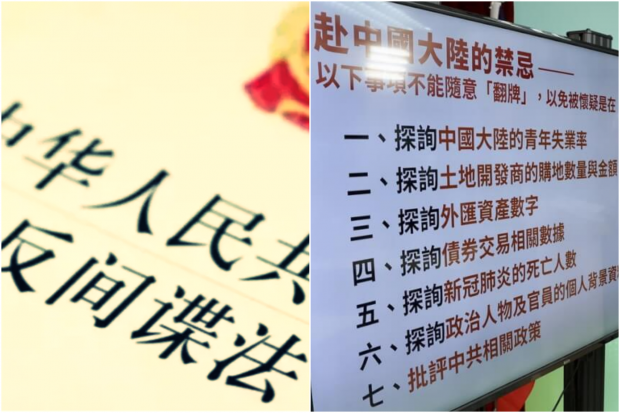 中华人民共
反间谍法
赴中國大陸的禁忌——
以下事項不能隨意「翻牌」，以免被懷疑是在
一、探詢中國大陸的青年失業率
二、探詢土地開發商的購地數量與金額
三、探詢外匯資產數字
四、探詢債券交易相關數據
五、探詢新冠肺炎的死亡人數
六、探詢政治人物及官員的個人背景資
七、批評中共相關政策